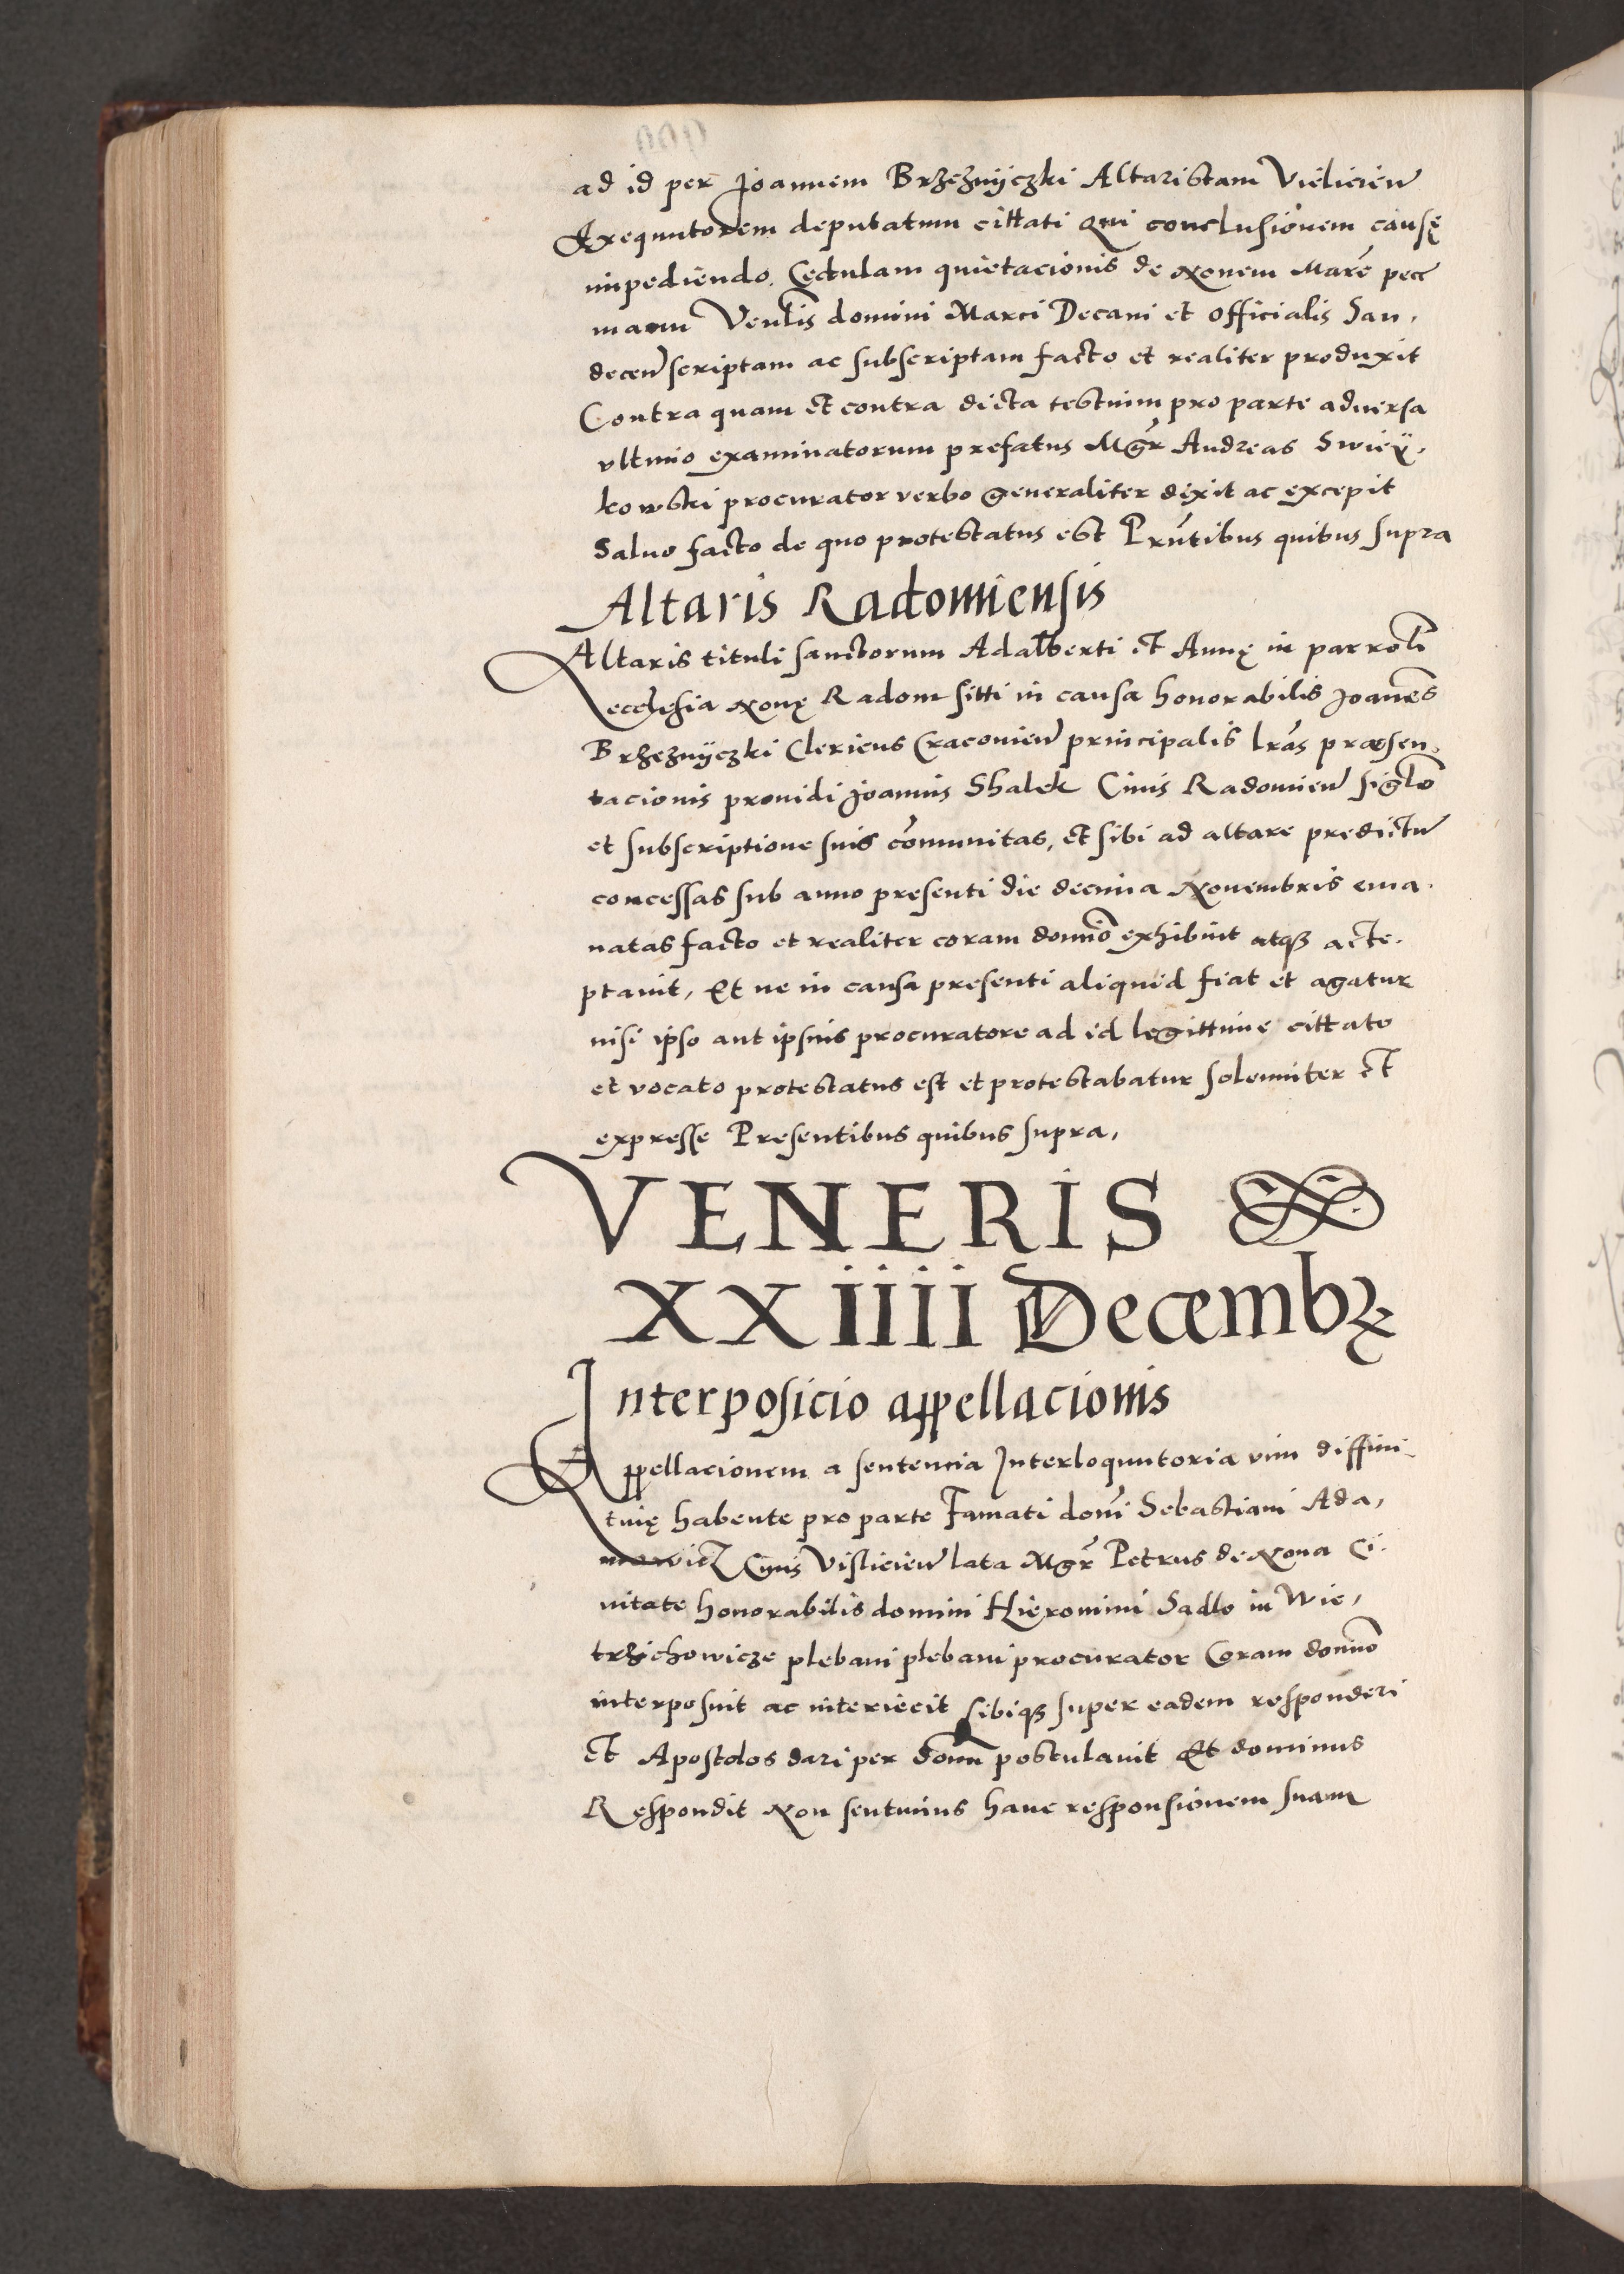 ad id per Joannem Brzeznÿczki Altaristam Vielicień
Exequutorem deputatum cittati Qui conclusionem causę
impediendo. Cedulam quietacionis de Novem Marc̄ pecc̄
manu Venēlis domini Marci Decani et Officialis San,
deceń scriptam ac subscriptam facto et realiter produxit
Contra quam et contra dicta testium pro parte adversa
ultimo examinatorum prefatus Mḡr Andreas Swieÿ,
kowski procurator verbo generaliter dixit ac excepit
Salvo facto de quo protestatus est Prn̄tibus quibus supra
Altaris Radomiensis
Altaris tituli sanctorum Adalberti et Annę in parroli
ecclesia Novę Radom sitti in causa honorabilis Joannes
Brzeznÿczki Clericus Cracovień principalis lrās præsen,
tacionis providi Joannis Shalek Civis Radomień siglō
et subscriptione suis cōmunitas, et sibi ad altare predictū
concessas sub anno presenti die decima Novembris ema.
natas facto et realiter coram domīō exhibuit atq3 acte.
ptavit, Et ne in causa presenti aliquid fiat et agatur
nisi ipso aut ipsius procuratore ad id legittime cittato
et vocato protestatus est et protestabatur solenniter et
expresse Presentibus quibus supra,
VENERIS
XXIIII Decembꝝ
Interposicio appellacionis
Appellacionem a sentencia Interloquutoria vim diffini-
tivę habente pro parte Famati domī Sebastiani Ada,
mowicz Civis Vislicień lata Mḡr Petrus de Nova Ci.
vitate honorabilis domini Hieronimi Sadlo in Wie,
trzichowicze plebani plebani procurator Coram domīō
interposuit ac interiecit sibiq3 super eadem responderi
et Apostolos dari per domī postulavit Et dominus
Respondit Non sentimus hanc responsionem suam